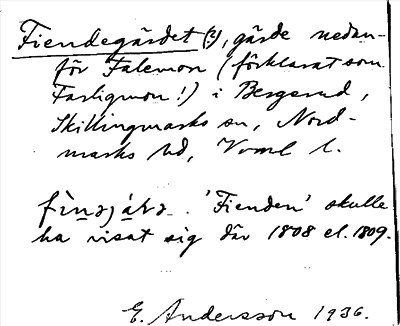 Fiendegärdet (?), gärde nedan-
för Falemon (förklarat som
Farligmon!) i Bergerud,
Skillingmarks sn, Nord-
marks hd, Vrml l.
'Fienden' skulle
ha visat sig där 1808 el. 1809.
E. Andersson 1936.